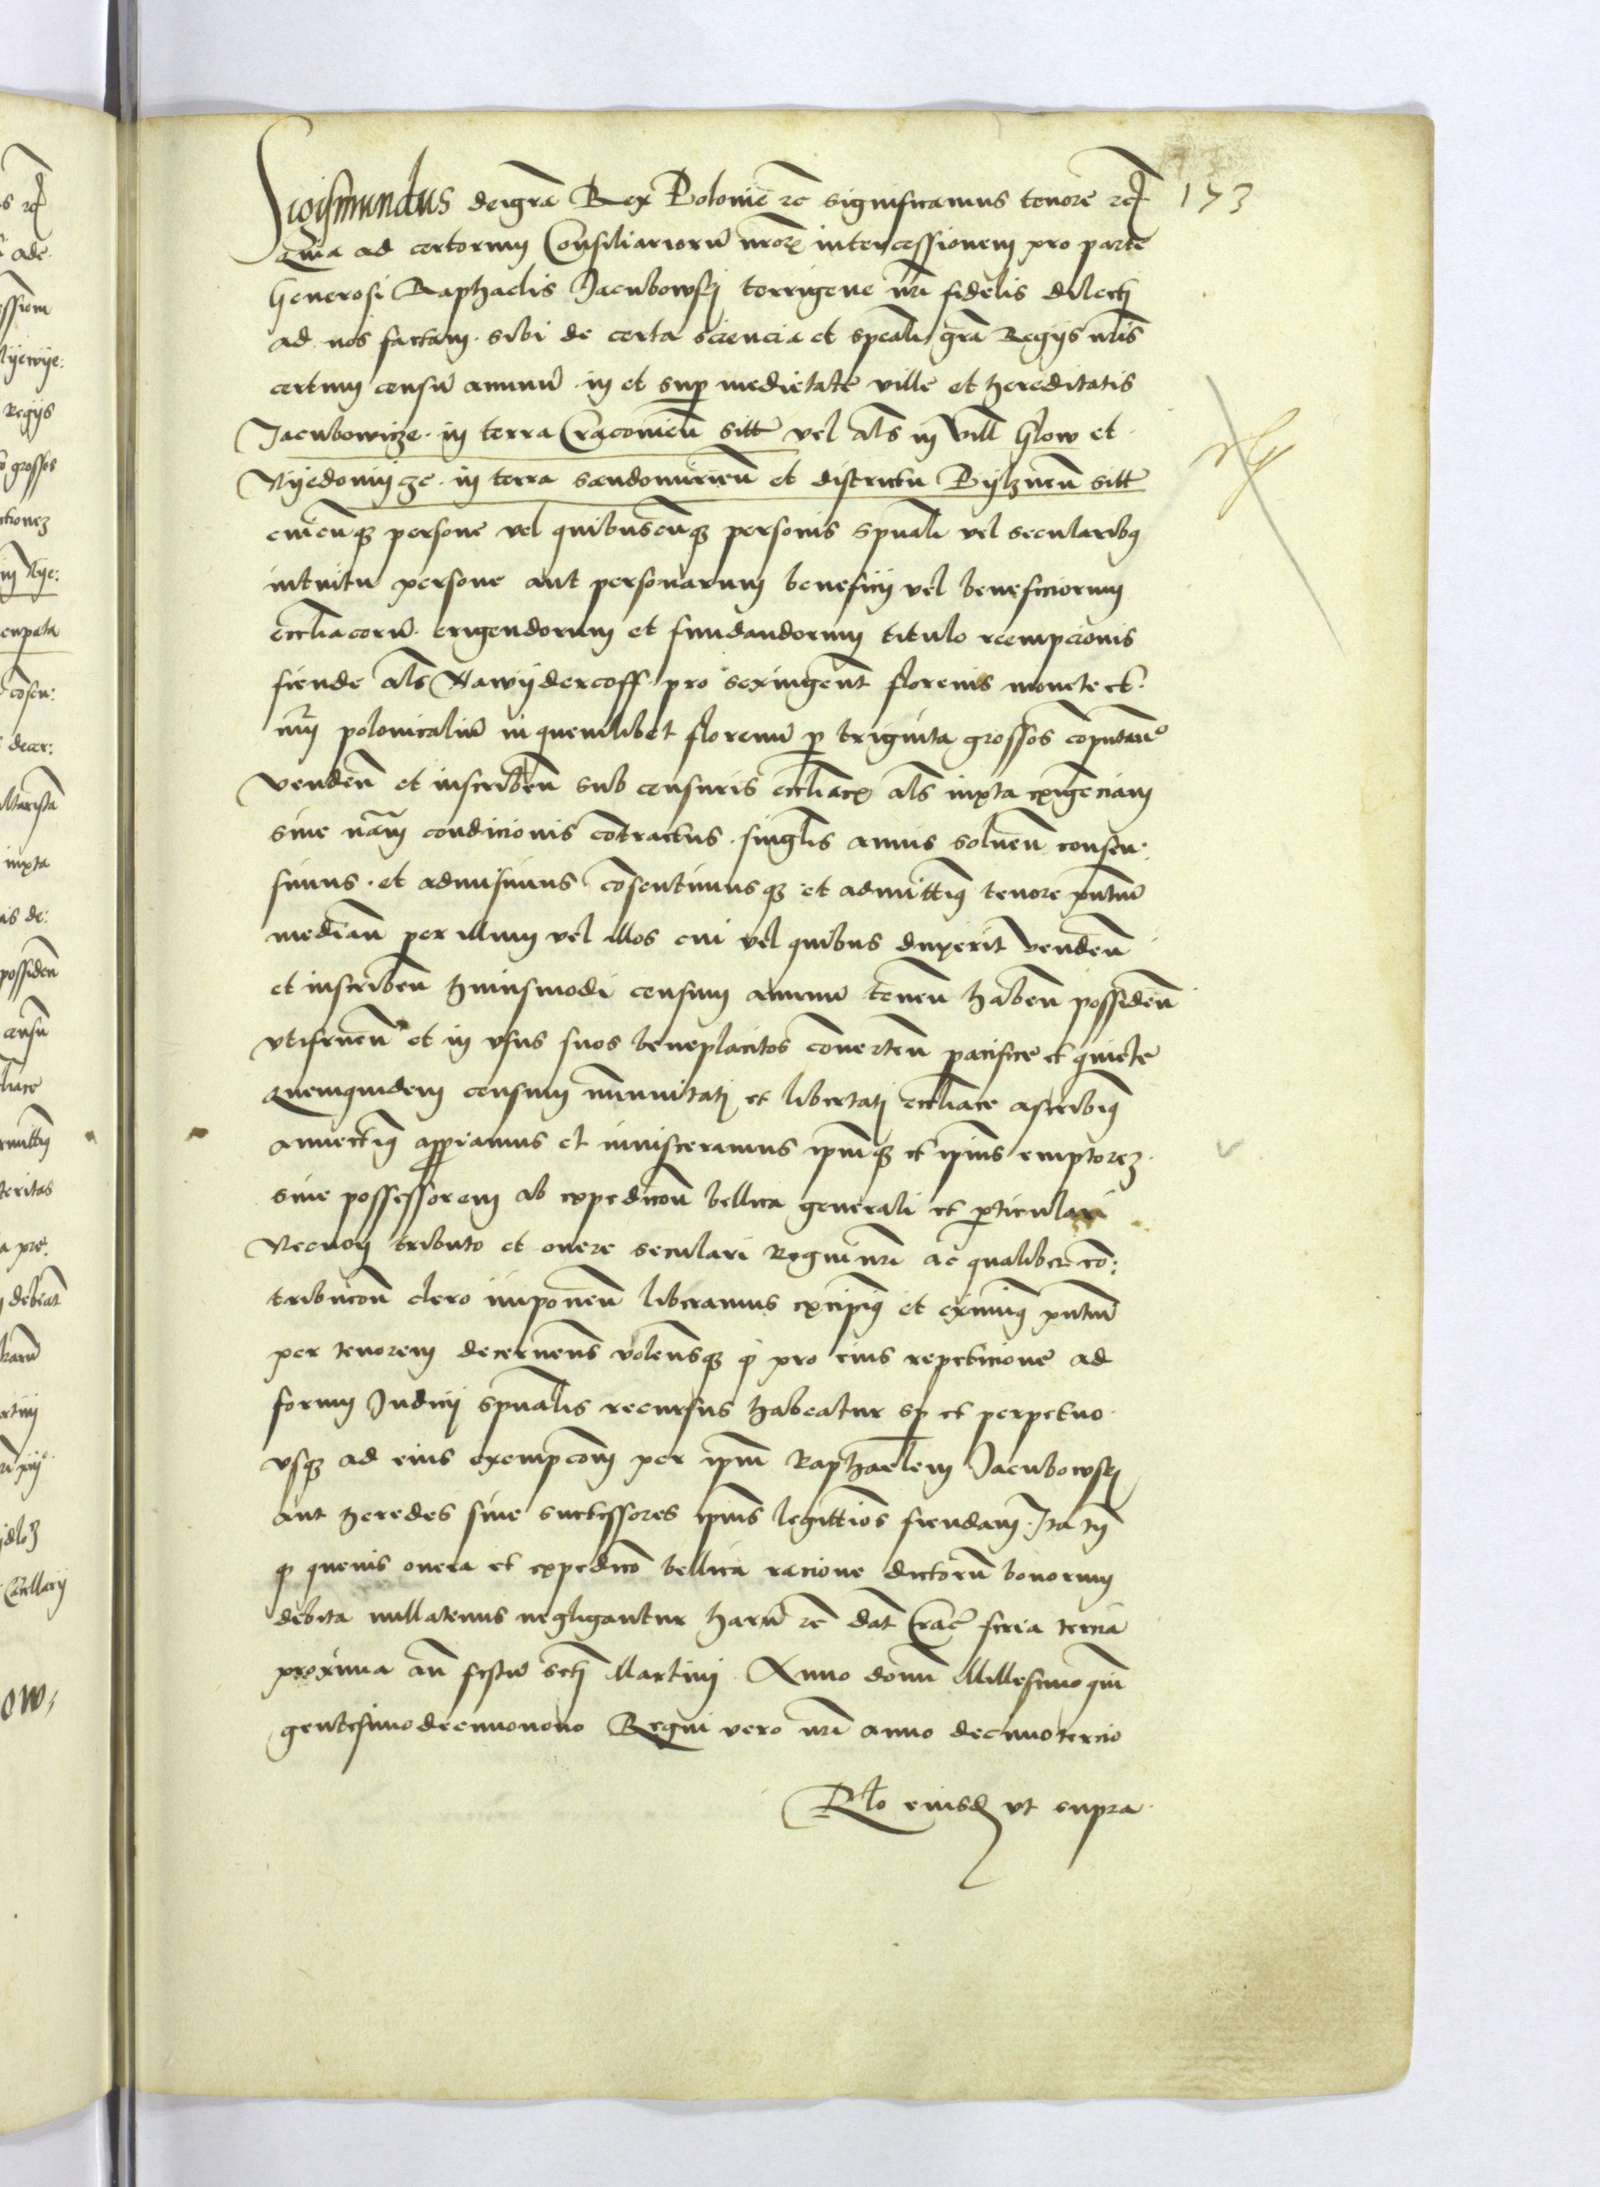 Sigismundus dei grã Rex Polonie zc significamus tenore zc 173
Quia ad certorum Consiliariorũ nrorẽ intercessionem pro parte
Generosi Raphaelis Jacubowsky terrigene nri fidelis dilecti
ad nos factam sibi de certa sciencia et speali grã Regijs nris
certum censũ annuũ in et sup medietatẽ ville et hereditatis
Jacubowicze in terra Cracovieñ sitẽ vel als in vill Glow et
Nyedomycze in terra sandomirieñ et districtu Pylzneñ sitt
cuicũq persone vel quibuscũq personis spuali vel secularibq
intuitu persone aut personarum beneficij vel beneficiorum
eccliacorũ erigendorum et fundandorum titulo reempcionis
fiende als NawyderCoff pro sexingent florenis monete et
nrj polonicaliũ in quemlibet florenũ p triginta grossos cõputañ
vendeñ et inscribeñ sub censuris eccliacẽ als iuxta exigenciam
sive nãm condicionis cõtractus singlis annis solueñ consen:
simus et admisimus cõsentimusq et admittimq tenore pntiũ
mediañ per illum vel illos cui vel quibus duxerit vendeñ
et inscribeñ huiusmodi censum annuũ teneñ habeñ possideñ
utifrueñ et in usus suos beneplacitos cõverteñ pacifice et quiete
Quemquidem censum immunitati et libertati eccliace ascribimq
annectimq appiamus et inuisceramus ipmq et ipius emptorez
sive possessorem ab expedicoñ bellica generali et pticulari
Necnon tributo et onere seculari Regni nri ac qualibet cõ:
tribucoñ clero imponeñ liberamus excipimq et eximimq pntiũ
per tenorem decerneñs voleñsq q pro eius repeticione ad
forum Judicij spualis recursus habeatur sp et perpetuo
usq ad eius exempcoñ per ipm Raphaelem Jacubowsky
aut heredes sive successores ipius legittios fiendam Ita tñ
q quevis onera et expedico bellica racione dictorũ bonorum
debita nullatenus negligantur harũ zc dat Crac feria tercia
proxima añ festũ scti Martini Anno domi Millesimoquin
gentesimodecimonono Regni vero nri anno decimotercio
Rlo eiusd ut supra